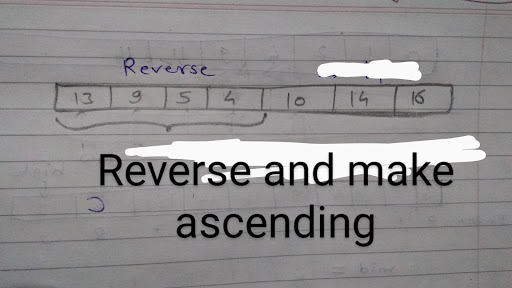 Reverse
13 9 5 4 10 14 16
Reverse and make
ascending